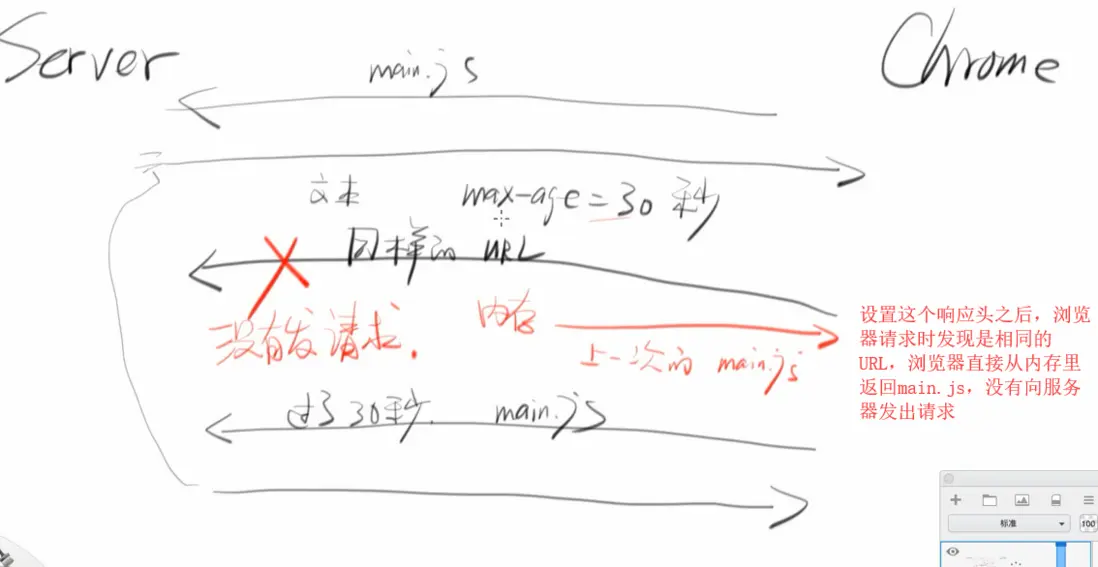 Server
Chrome
main.js
文本 max-age=30秒
同样的 URL
没有发请求.
内存
上一次的 main.js
设置这个响应头之后，浏览
器请求时发现是相同的
URL，浏览器直接从内存里
返回main.js，没有向服务
器发出请求
过了30秒. main.js
标准
100